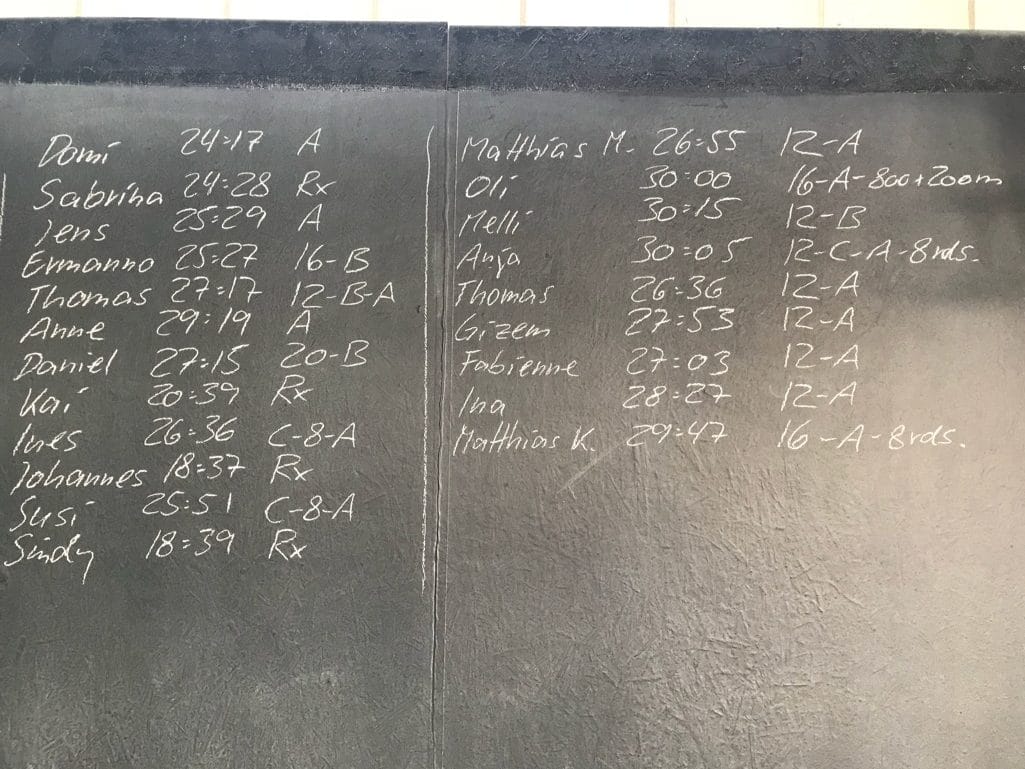 Domi 24:17 A
Sabrina 24:28 Rx
Jens 25:29 A
Ermanno 25:27 16-B
Thomas 27:17 12-B-A
Anne 29:19 A
Daniel 27:15 20-B
Kai 20:39 Rx
Ines 26:36 C-8-A
Johannes 18:37 Rx
Susi 25:51 C-8-A
Sindy 18:39 Rx
Matthias M. 26:55 12-A
Oli 30:00 16-A-800+200m
Melli 30:15 12-B
Anja 30:05 12-C-A-8rds.
Thomas 26:36 12-A
Gizem 27:53 12-A
Fabienne 27:03 12-A
Ina 28:27 12-A
Matthias K. 29:47 16-A-8rds.